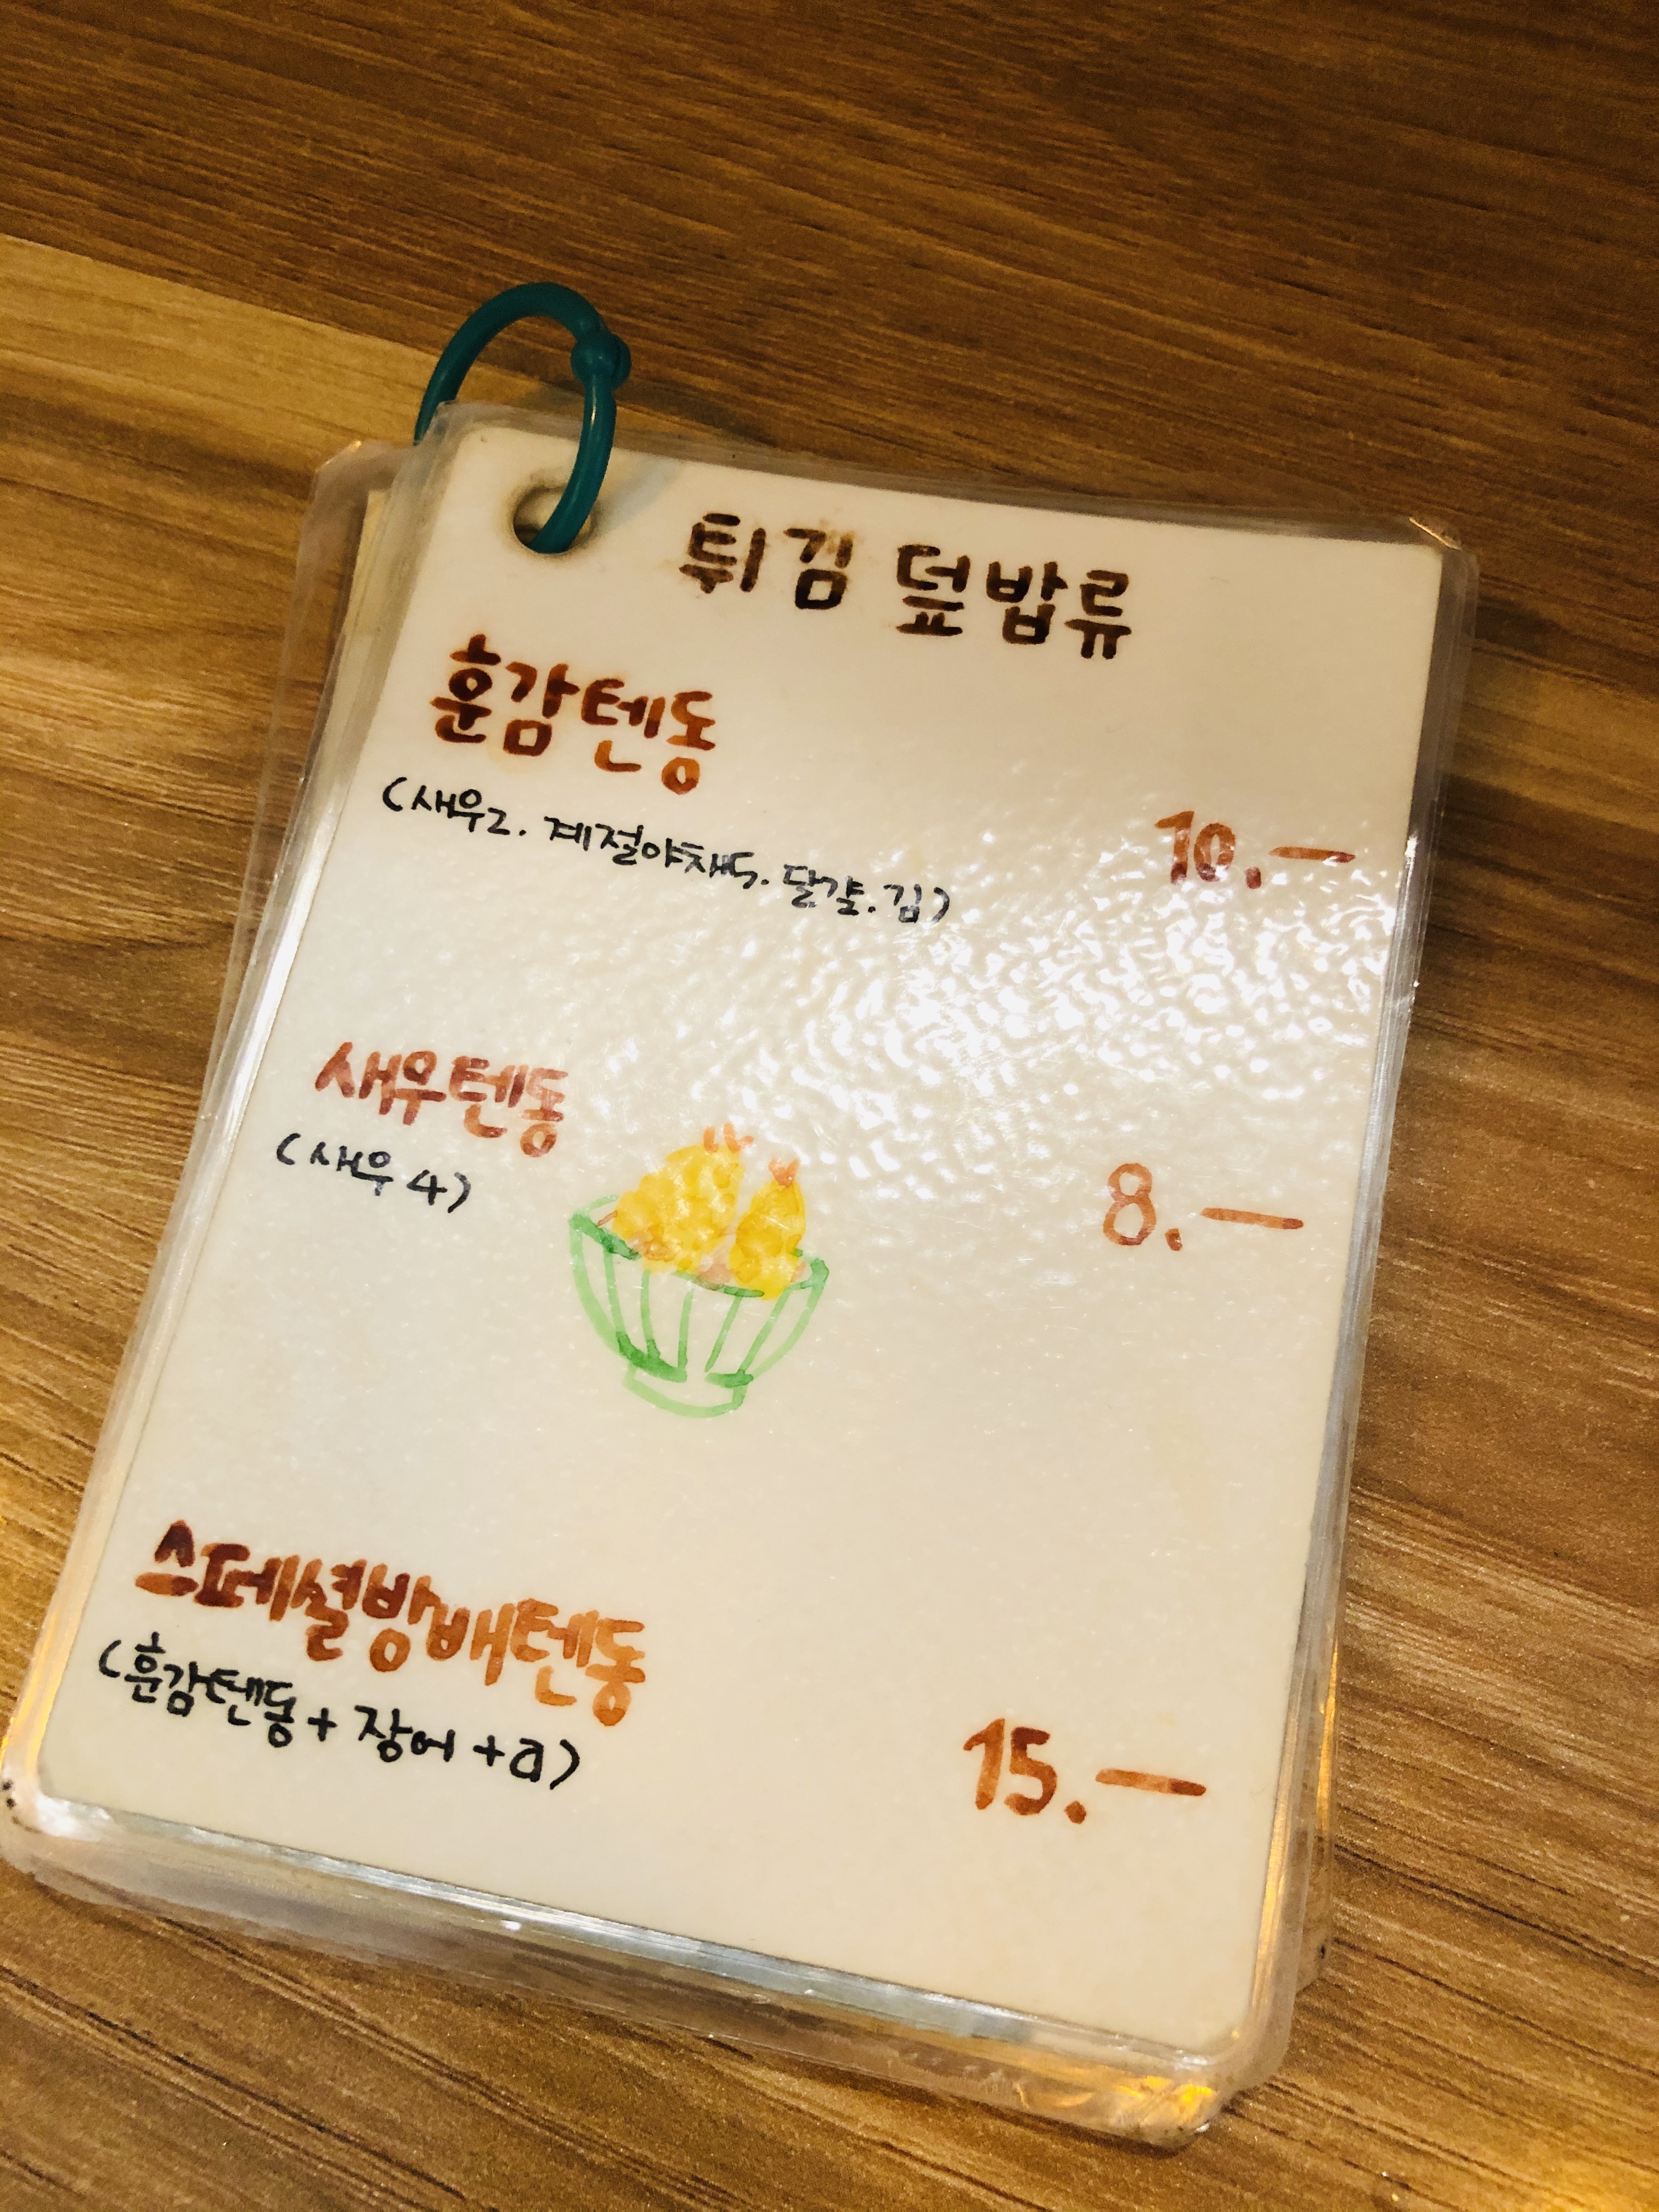 튀김 덮밥류
훈감텐동
(새우2. 계절야채5. 달걀. 김)
10.—
새우텐동
(새우 4)
8.—
스페셜방배텐동
(훈감텐동 + 장어 +a)
15.—